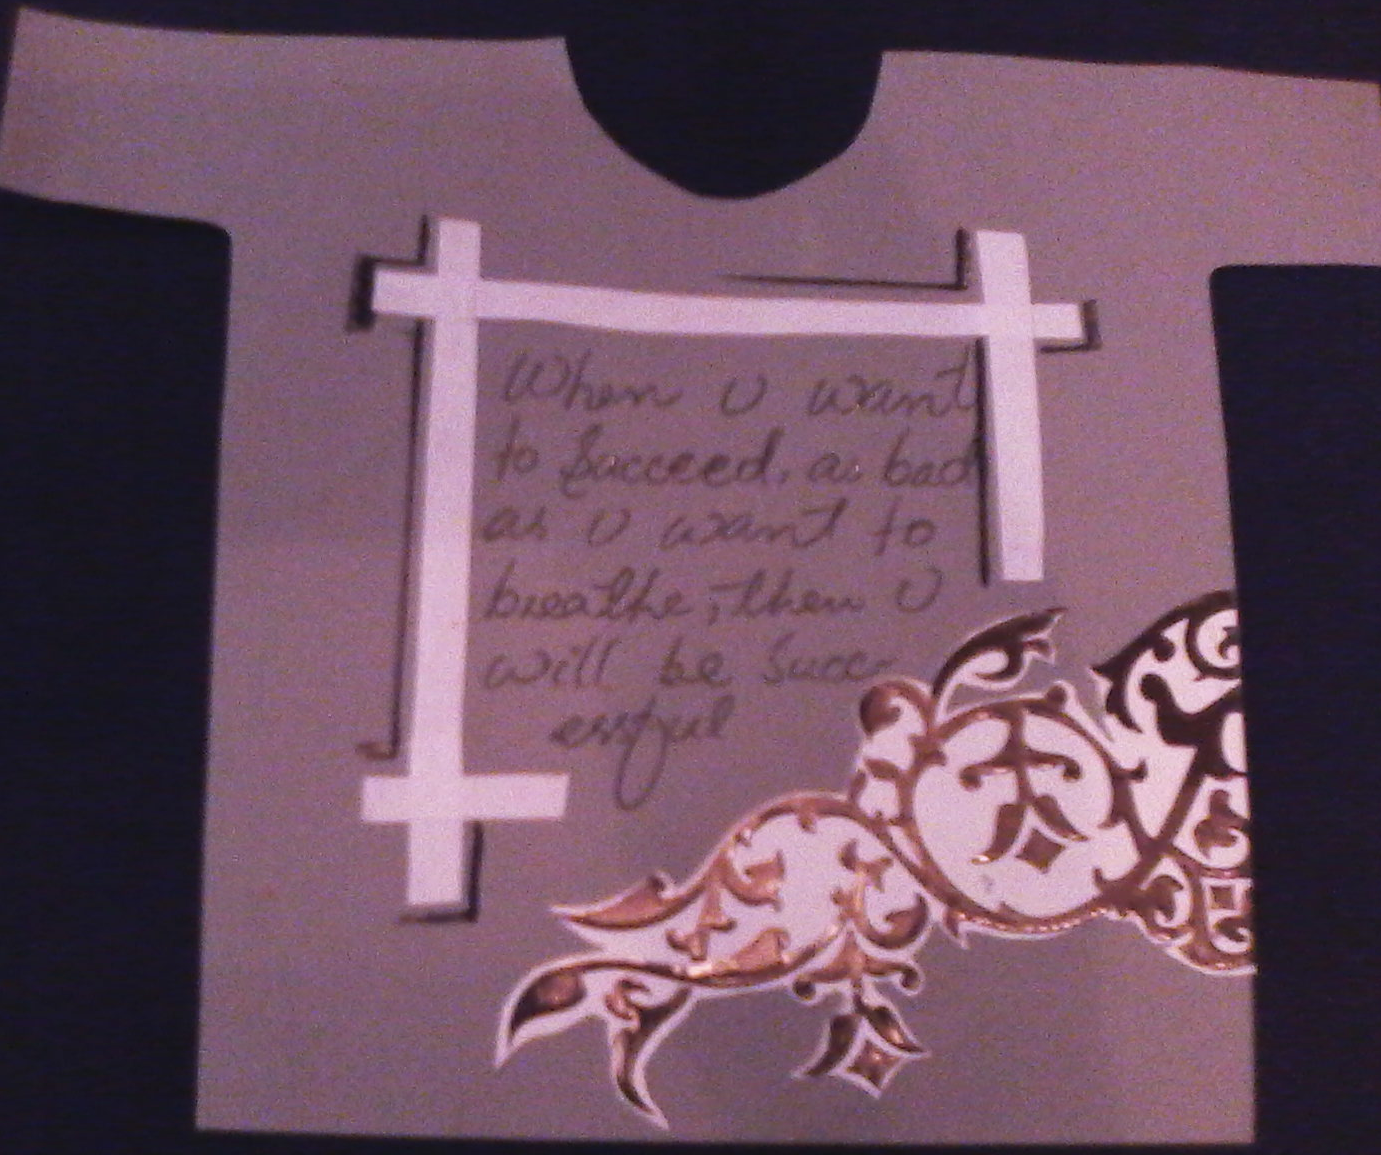 When U want
to Succeed, as bad
as U want to
breathe, then U
will be Succ-
essful